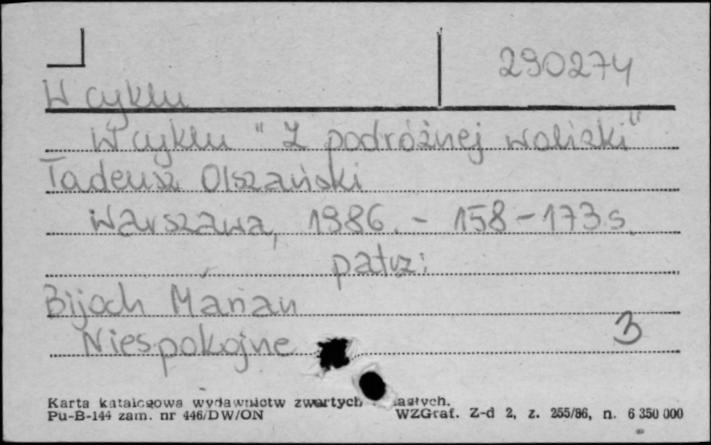 290274
W cyklu
W cyklu "Z podróżnej walizki"
Tadeusz Olszański
Warszawa, 1986. - 158-173 s.
patrz:
Bijoch Marian
Niespokojne
3
Karta katalogowa wydawnictw zwartych
Pu-B-144 zam. nr 446/DW/ON WZGraf. Z-d 2, z. 255/86, n. 6 350 000